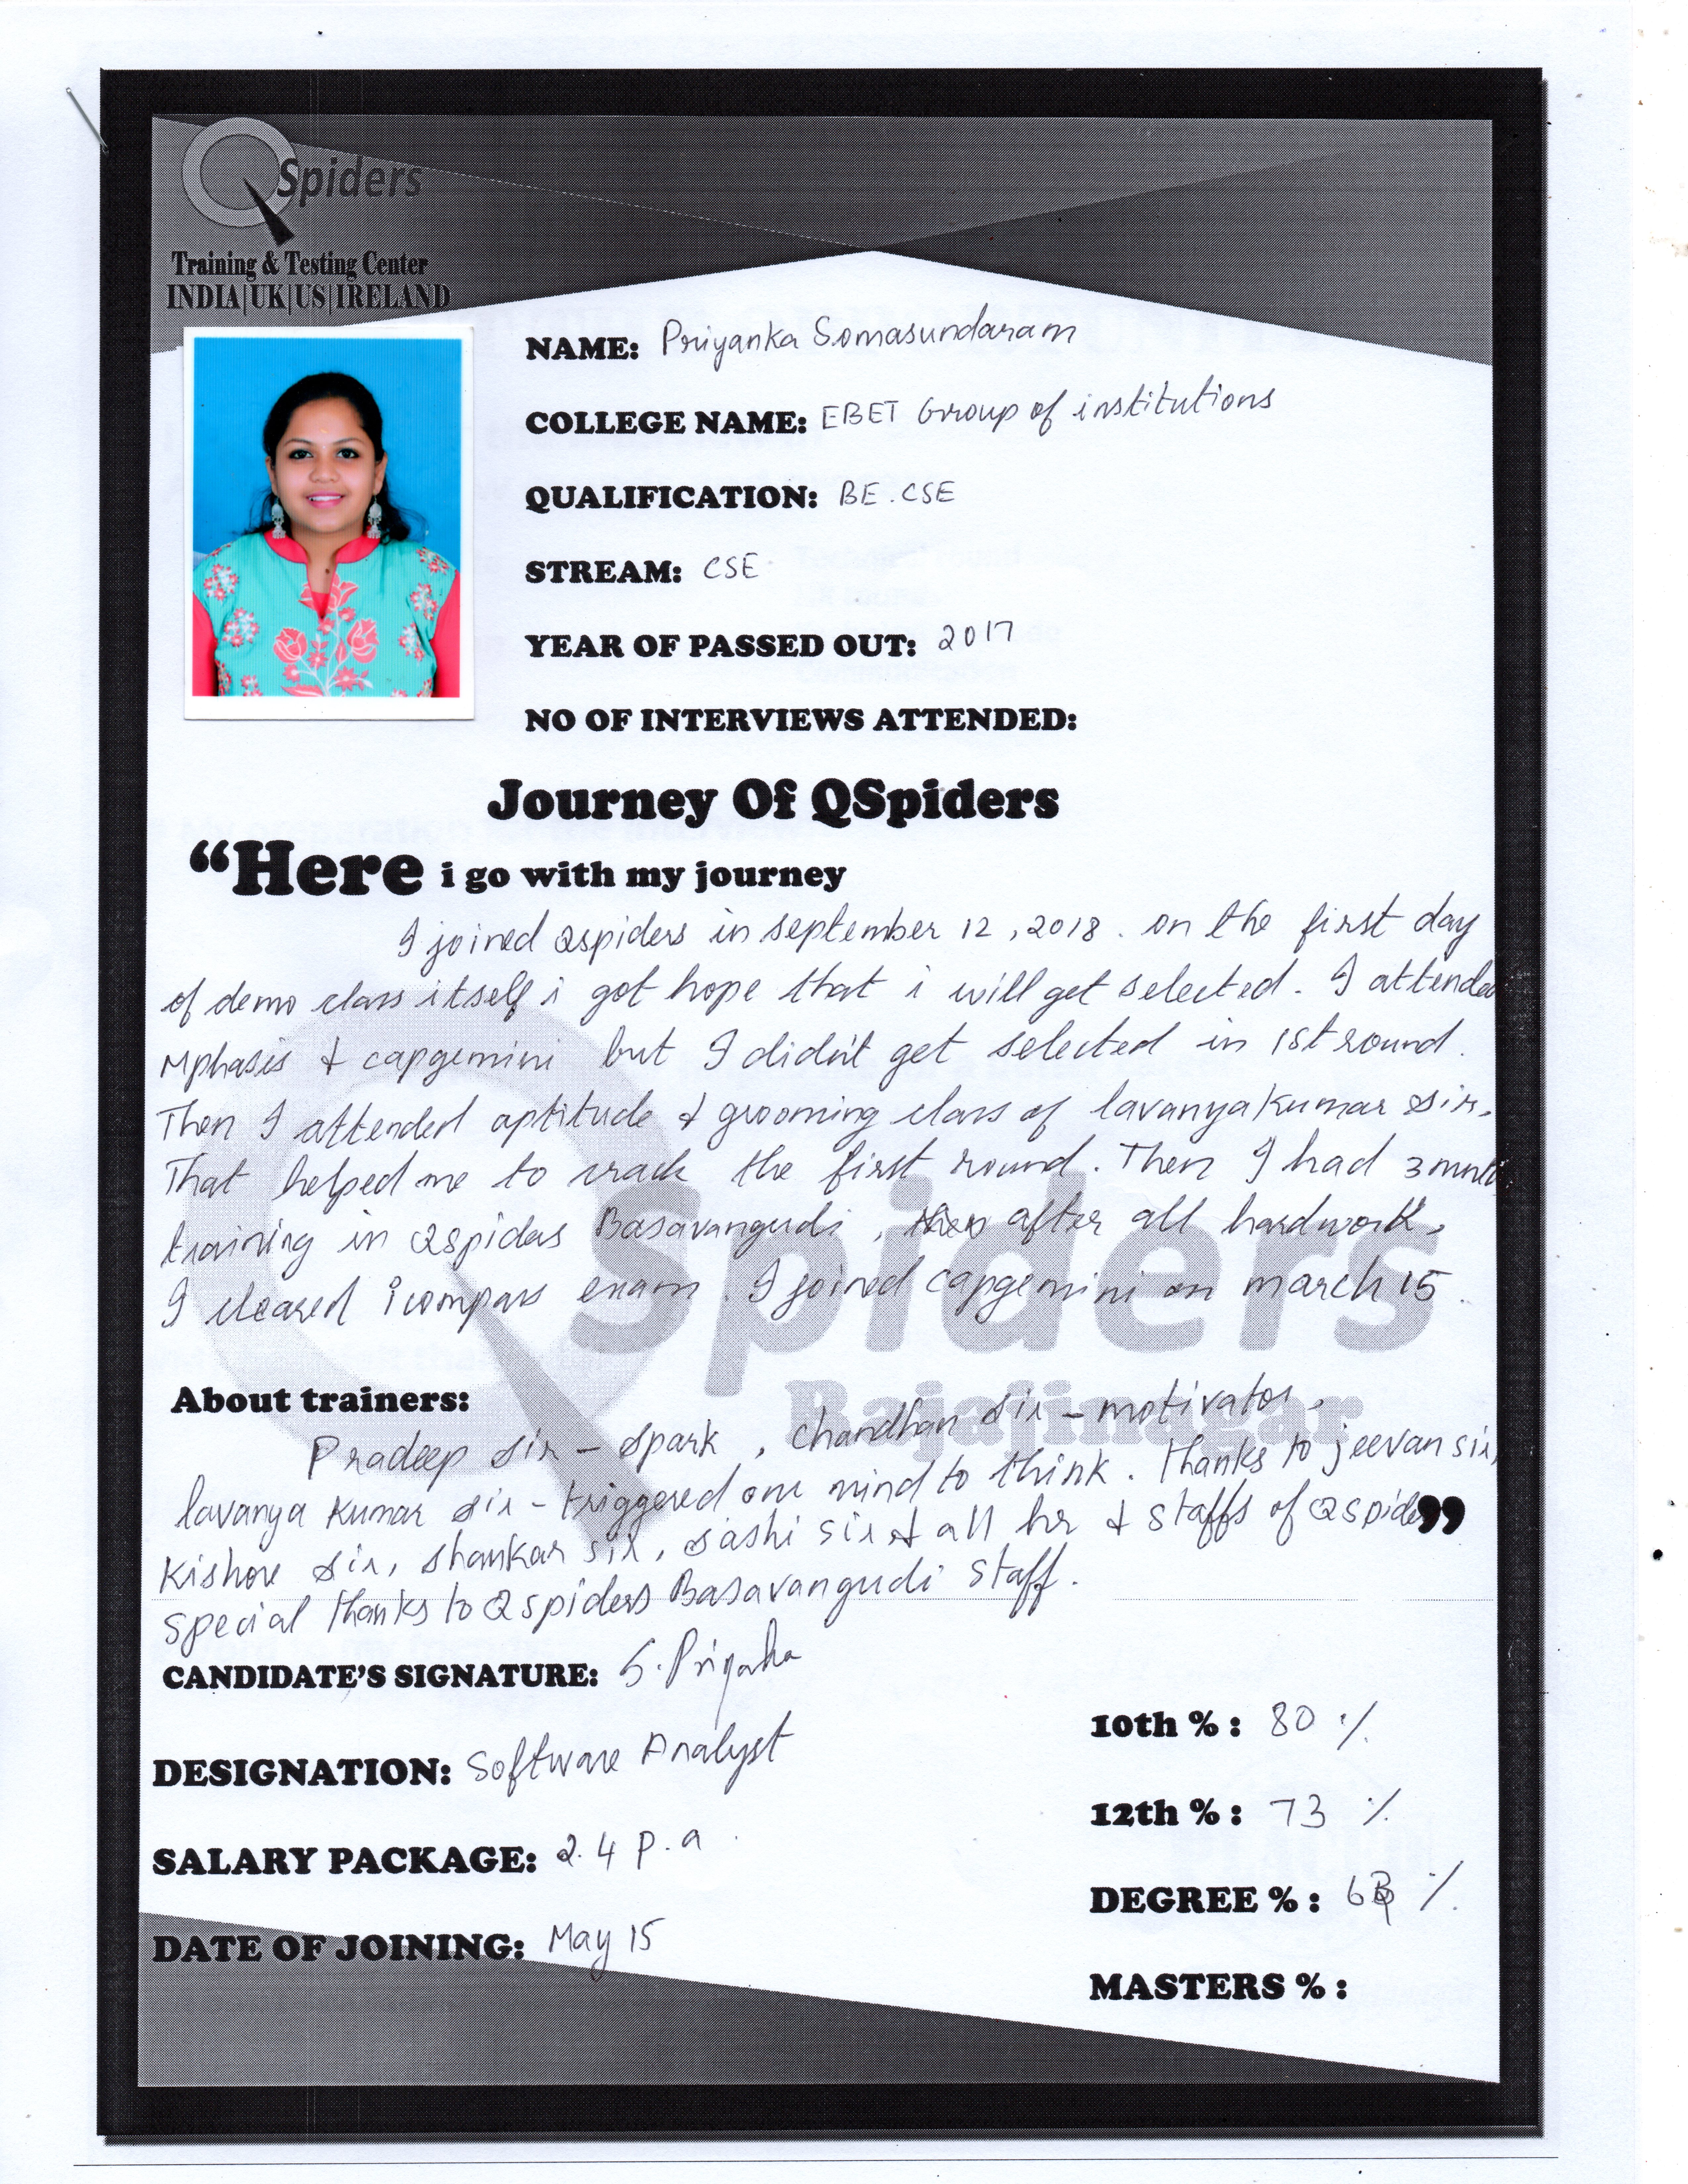 QSpiders
Training & Testing Center
INDIA|UK|US|IRELAND
NAME: Priyanka Somasundaram
COLLEGE NAME: EBET Group of institutions
QUALIFICATION: BE.CSE
STREAM: CSE
YEAR OF PASSED OUT: 2017
NO OF INTERVIEWS ATTENDED:
Journey Of QSpiders
“Here i go with my journey
I joined Qspiders in september 12, 2018. on the first day
of demo class itself i got hope that i will get selected. I attended
Mphasis & capgemini but I didn't get selected in 1st round.
Then I attended aptitude & grooming class of lavanyakumar sir.
That helped me to crack the first round. Then I had 3
training in Qspiders Basavangudi, after all hardwork,
I cleared icompass exam. I joined capgemini on march 15.
Spiders
Rajajinagar
About trainers:
Pradeep sir - spark, Chandhan sir - motivator,
lavanya kumar sir - triggered our mind to think. Thanks to jeevan sir,
Kishore sir, shankar sir, sashi sir & all hr & staffs of Qspiders”
special thanks to Qspiders Basavangudi staff.
CANDIDATE'S SIGNATURE: S. Priyanka
10th % : 80 %
DESIGNATION: Software Analyst
12th % : 73 %
SALARY PACKAGE: 2.4 p.a
DEGREE % : %
DATE OF JOINING: May 15
MASTERS % :